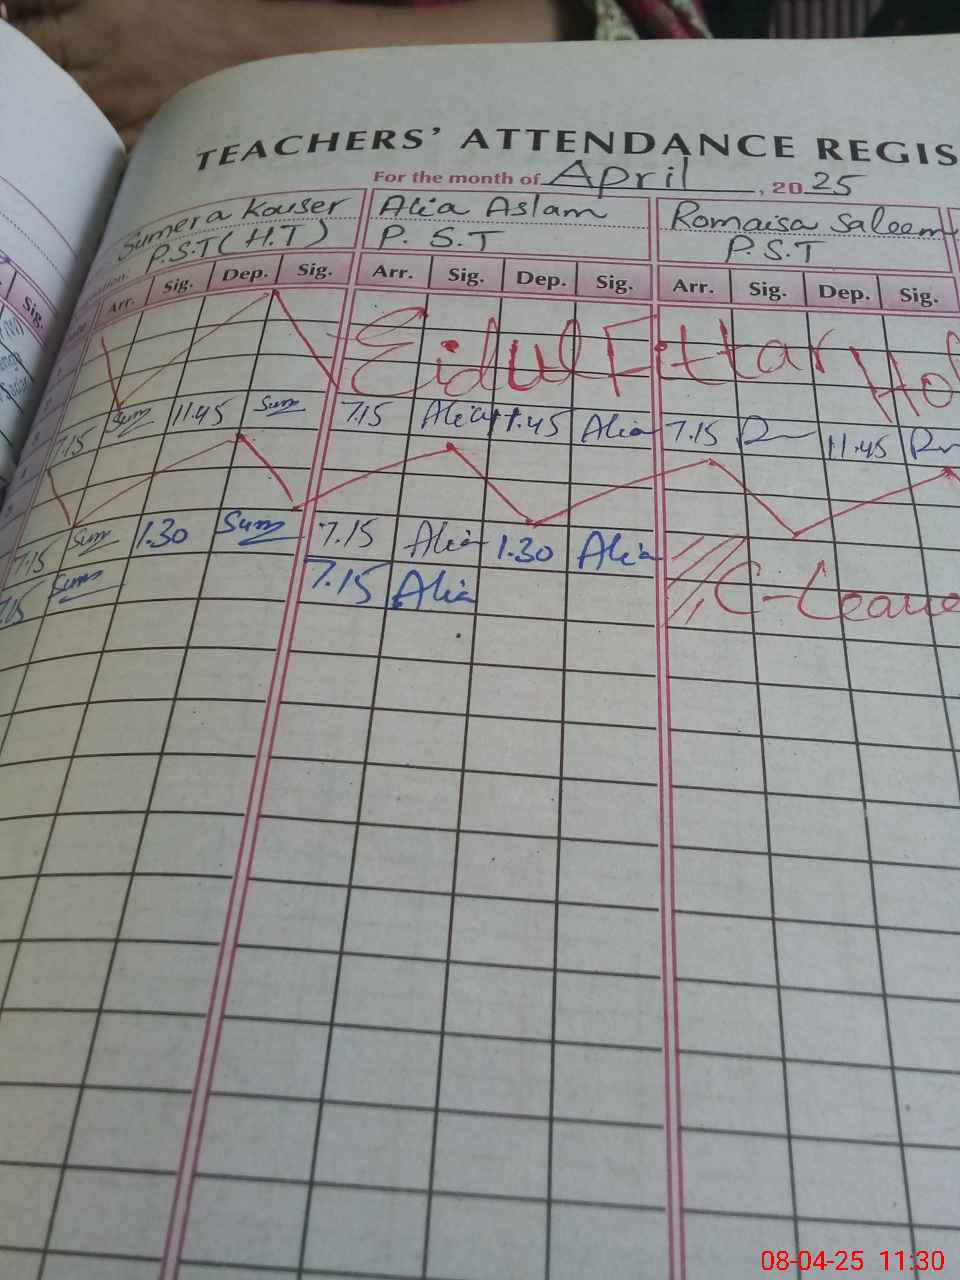 TEACHERS' ATTENDANCE REGIS
For the month of April, 2025
Sumera Kouser Alia Aslam Romaisa Saleem
P.S.T (H.T) P. S.T P.S.T
Arr. Sig. Dep. Sig. Arr. Sig. Dep. Sig. Arr. Sig. Dep. Sig.
Sig.
Eidul Fittar Hol
7.15 Sum 11.45 Sum 7.15 Alia 11.45 Alia 7.15 11.45
7.15 Sum 1.30 Sum 7.15 Alia 1.30 Alia
7.15 Sum 7.15 Alia C-Leave
08-04-25 11:30